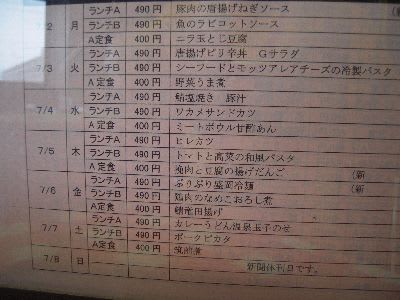 ランチA 490 円 豚肉の唐揚げねぎソース
2 月 ランチB 490 円 魚のラビコットソース
A定食 400 円 ニラ玉とじ豆腐
ランチA 490 円 唐揚げピリ辛丼 Gサラダ
7/3 火 ランチB 490 円 シーフードとモッツアレアチーズの冷製パスタ
A定食 400 円 野菜うま煮
ランチA 490 円 鮎塩焼き 豚汁
7/4 水 ランチB 490 円 ワカメサンドカツ
A定食 400 円 ミートボウル甘酢あん
ランチA 490 円 ヒレカツ
7/5 木 ランチB 490 円 トマトと高菜の和風パスタ
A定食 400 円 挽肉と豆腐の揚げだんご (新
ランチA 490 円 ぷりぷり盛岡冷麺 (新
7/6 金 ランチB 490 円 鶏肉のなめこおろし煮
A定食 400 円 竜田揚げ
ランチA 490 円 カレーうどん温泉玉子のせ
7/7 土 ランチB 490 円 ポークピカタ
A定食 400 円 筑前煮
7/8 日 新聞休刊日です。